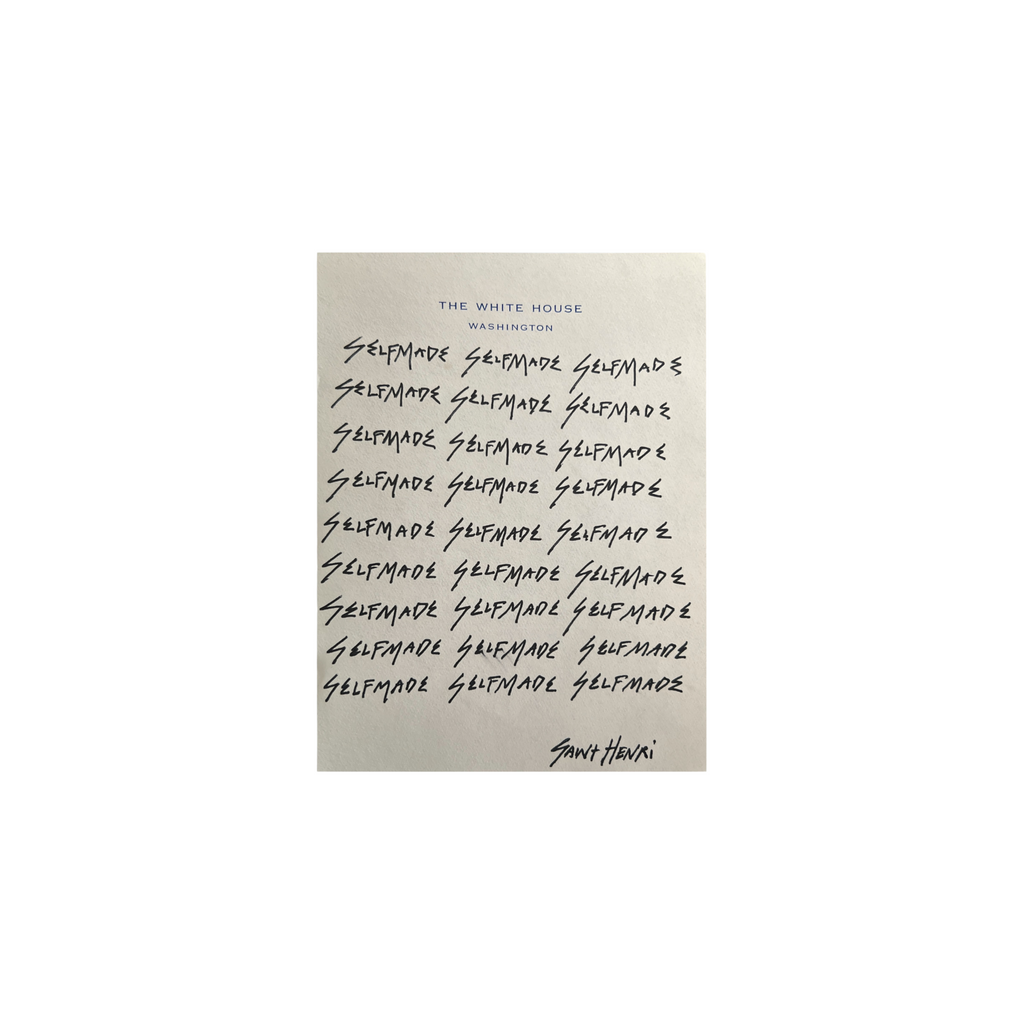 THE WHITE HOUSE
WASHINGTON
SELFMADE SELFMADE SELFMADE
SELFMADE SELFMADE SELFMADE
SELFMADE SELFMADE SELFMADE
SELFMADE SELFMADE SELFMADE
SELFMADE SELFMADE SELFMADE
SELFMADE SELFMADE SELFMADE
SELFMADE SELFMADE SELFMADE
SELFMADE SELFMADE SELFMADE
SELFMADE SELFMADE SELFMADE
HENRI